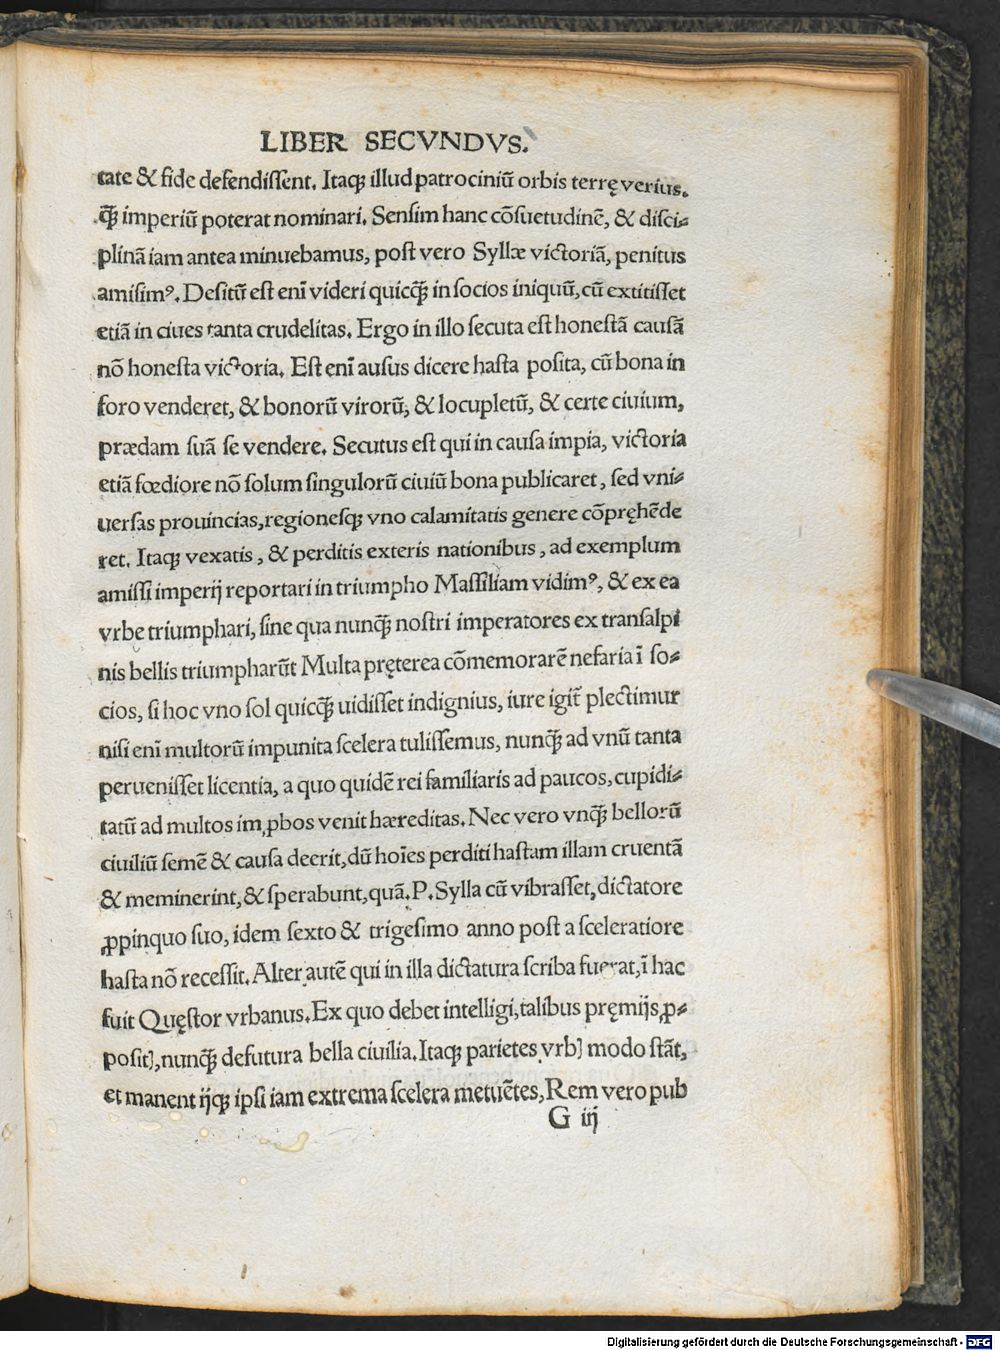 LIBER SECVNDVS.
tate & fide defendiſſent. Itaqꝫ illud patrociniũ orbis terrę verius.
q̃ꝫ imperiũ poterat nominari. Senſim hanc cõſuetudinẽ, & diſci⸗
plinã iam antea minuebamus, poſt vero Syllæ victoriã, penitus
amiſimꝰ. Deſitũ eſt enĩ videri quicq̃ꝫ in ſocios iniquũ, cũ extitiſſet
etiã in ciues tanta crudelitas. Ergo in illo ſecuta eſt honeſtã cauſã
nõ honeſta victoria. Eſt enĩ auſus dicere haſta poſita, cũ bona in
foro venderet, & bonorũ virorũ, & locupletũ, & certe ciuium,
prædam ſuã ſe vendere. Secutus eſt qui in cauſa impia, victoria
etiã fœdiore nõ ſolum ſingulorũ ciuiũ bona publicaret, ſed vni⸗
uerſas prouincias, regioneſqꝫ vno calamitatis genere cõpręhẽde
ret. Itaqꝫ vexatis, & perditis exteris nationibus, ad exemplum
amiſſi imperij reportari in triumpho Maſſiliam vidimꝰ, & ex ea
vrbe triumphari, ſine qua nunq̃ꝫ noſtri imperatores ex tranſalpi
nis bellis triumpharũt Multa pręterea cõmemorarẽ nefaria ĩ ſo⸗
cios, ſi hoc vno ſol quicq̃ꝫ uidiſſet indignius, iure igit̃ plectimur
niſi enĩ multorũ impunita ſcelera tuliſſemus, nunq̃ꝫ ad vnũ tanta
perueniſſet licentia, a quo quidẽ rei familiaris ad paucos, cupidi⸗
tatũ ad multos imꝓbos venit hæreditas. Nec vero vnq̃ꝫ bellorũ
ciuiliũ ſemẽ & cauſa deerit, dũ hoĩes perditi haſtam illam cruentã
& meminerint, & ſperabunt, quã. P. Sylla cũ vibraſſet, dictatore
ꝓpinquo ſuo, idem ſexto & trigeſimo anno poſt a ſceleratiore
haſta nõ receſſit. Alter autẽ qui in illa dictatura ſcriba fuerat, ĩ hac
fuit Quęſtor vrbanus. Ex quo debet intelligi, talibus pręmijs ꝓ⸗
poſitꝭ, nunq̃ꝫ defutura bella ciuilia. Itaqꝫ parietes vrbꝭ modo ſtãt,
et manent ijqꝫ ipſi iam extrema ſcelera metuẽtes, Rem vero pub
G iij
Digitalisierung gefördert durch die Deutsche Forschungsgemeinschaft - DFG